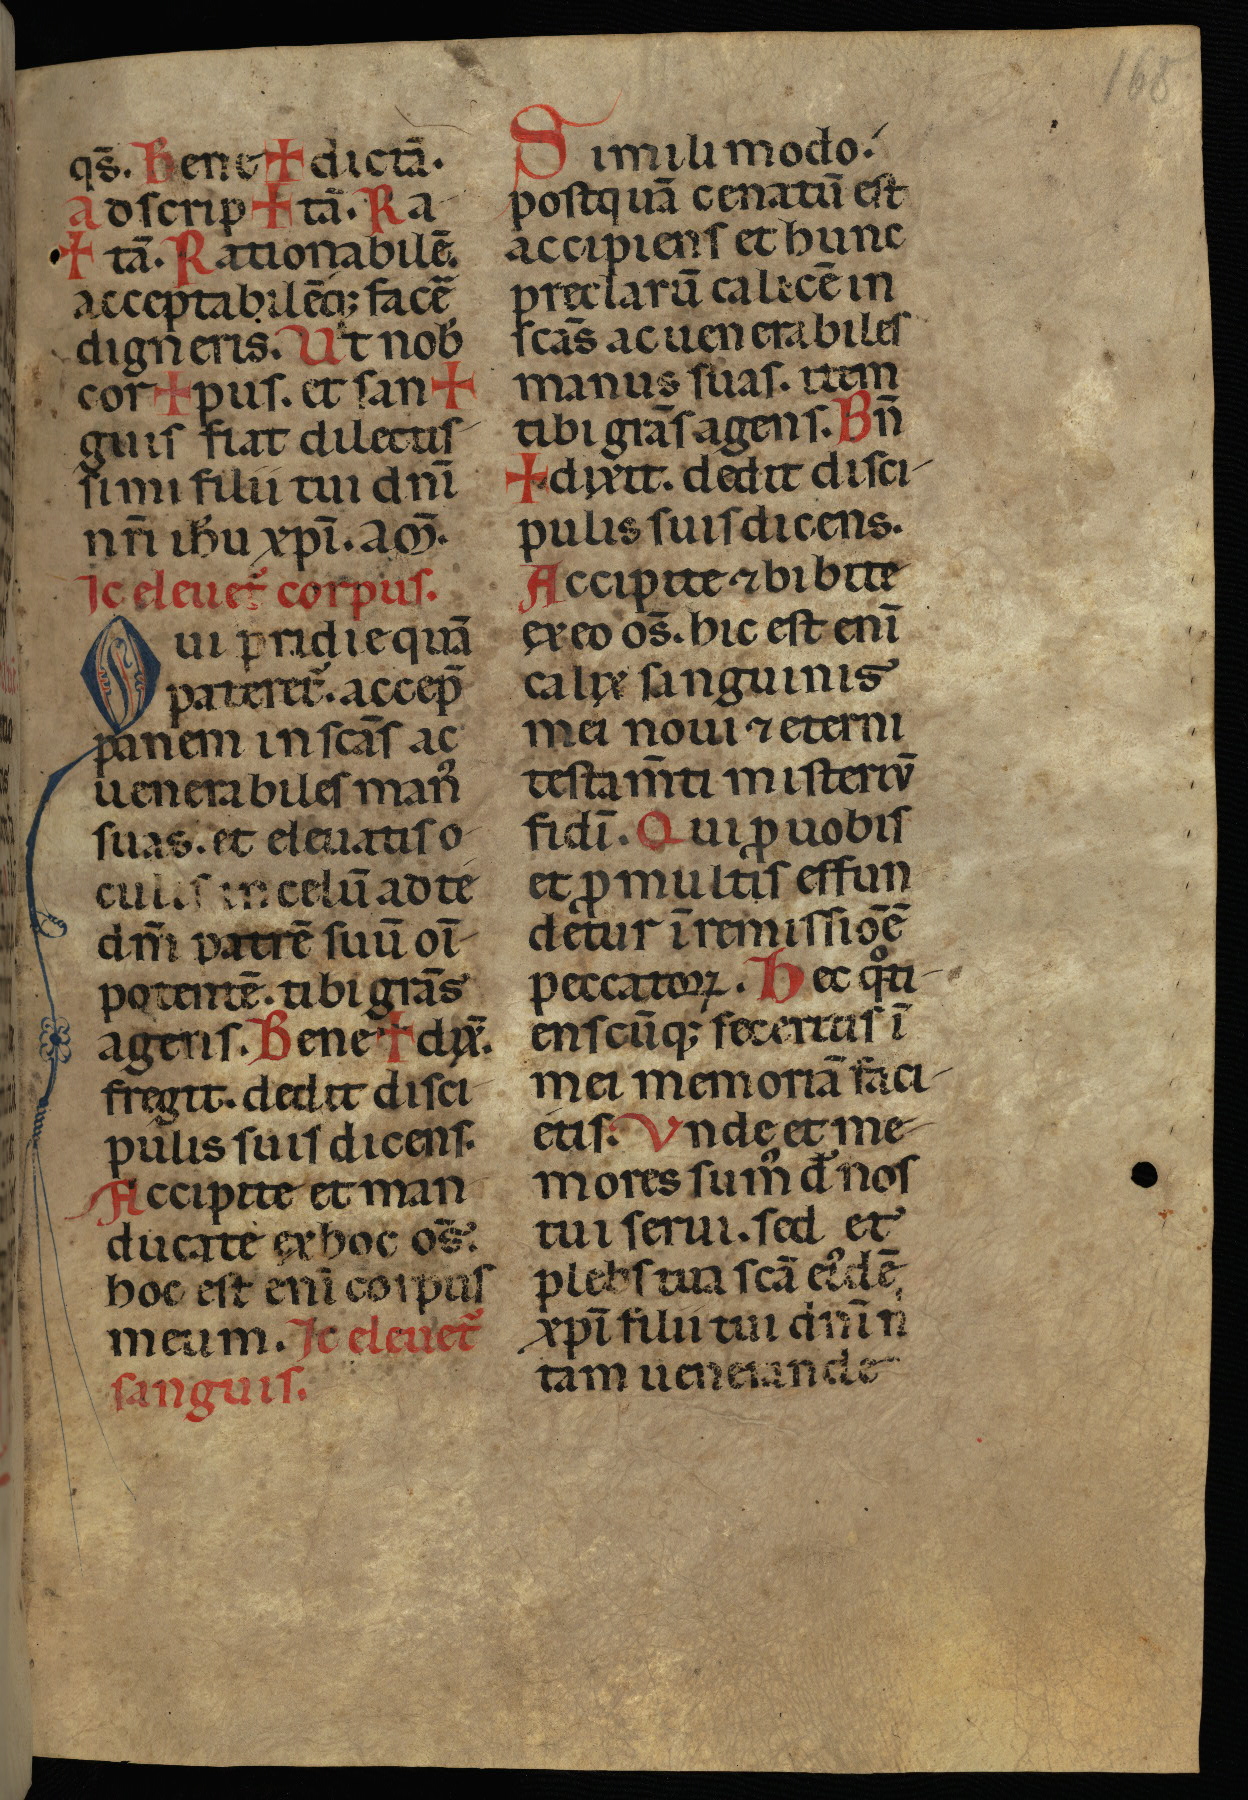 168
qs̄. Bene✝dictā.
Adscrip✝tā. Ra
✝tā. Rationabilē.
acceptabilēq; facē
digneris. Ut nob̄
cor✝pus. et san✝
guis fiat dilectis
simi filii tui dn̄i
nr̄i ih̄u xp̄i. am̄.
Ic eleuet᷑ corpus.
Qui pridie quā
pateret᷑. accep̄
panem in scās ac
uenerabiles man᷒
suas. et eleuatis o
culis in celū ad te
dm̄ patrē suū oī
potentē. tibi grās
agens. Bene✝dix̄.
fregit. dedit disci
pulis suis dicens.
Accipite et man
ducate ex hoc os̄.
hoc est enī corpus
meum. Ic eleuet᷑
sanguis.
Simili modo.
postquā cenatū est
accipiens et hunc
preclarū calicē in
scās ac uenerabiles
manus suas. item
tibi grās agens. Bn̄
✝dixit. dedit disci
pulis suis dicens.
Accipite ⁊ bibite
ex eo os̄. hic est enī
calix sanguinis
mei noui ⁊ eterni
testam̄ti misteriū
fidī. Qui ꝓ uobis
et ꝓ multis effun
detur ī remissiōē
peccatoꝝ. Hec qͦti
enscūq; feceritis ī
mei memoriā faci
etis. Vnde et me
mores sum᷒ dn̄e nos
tui serui. sed et
plebs tua scā ei᷒dē
xp̄i filii tui dn̄i n̄
tam uenerande